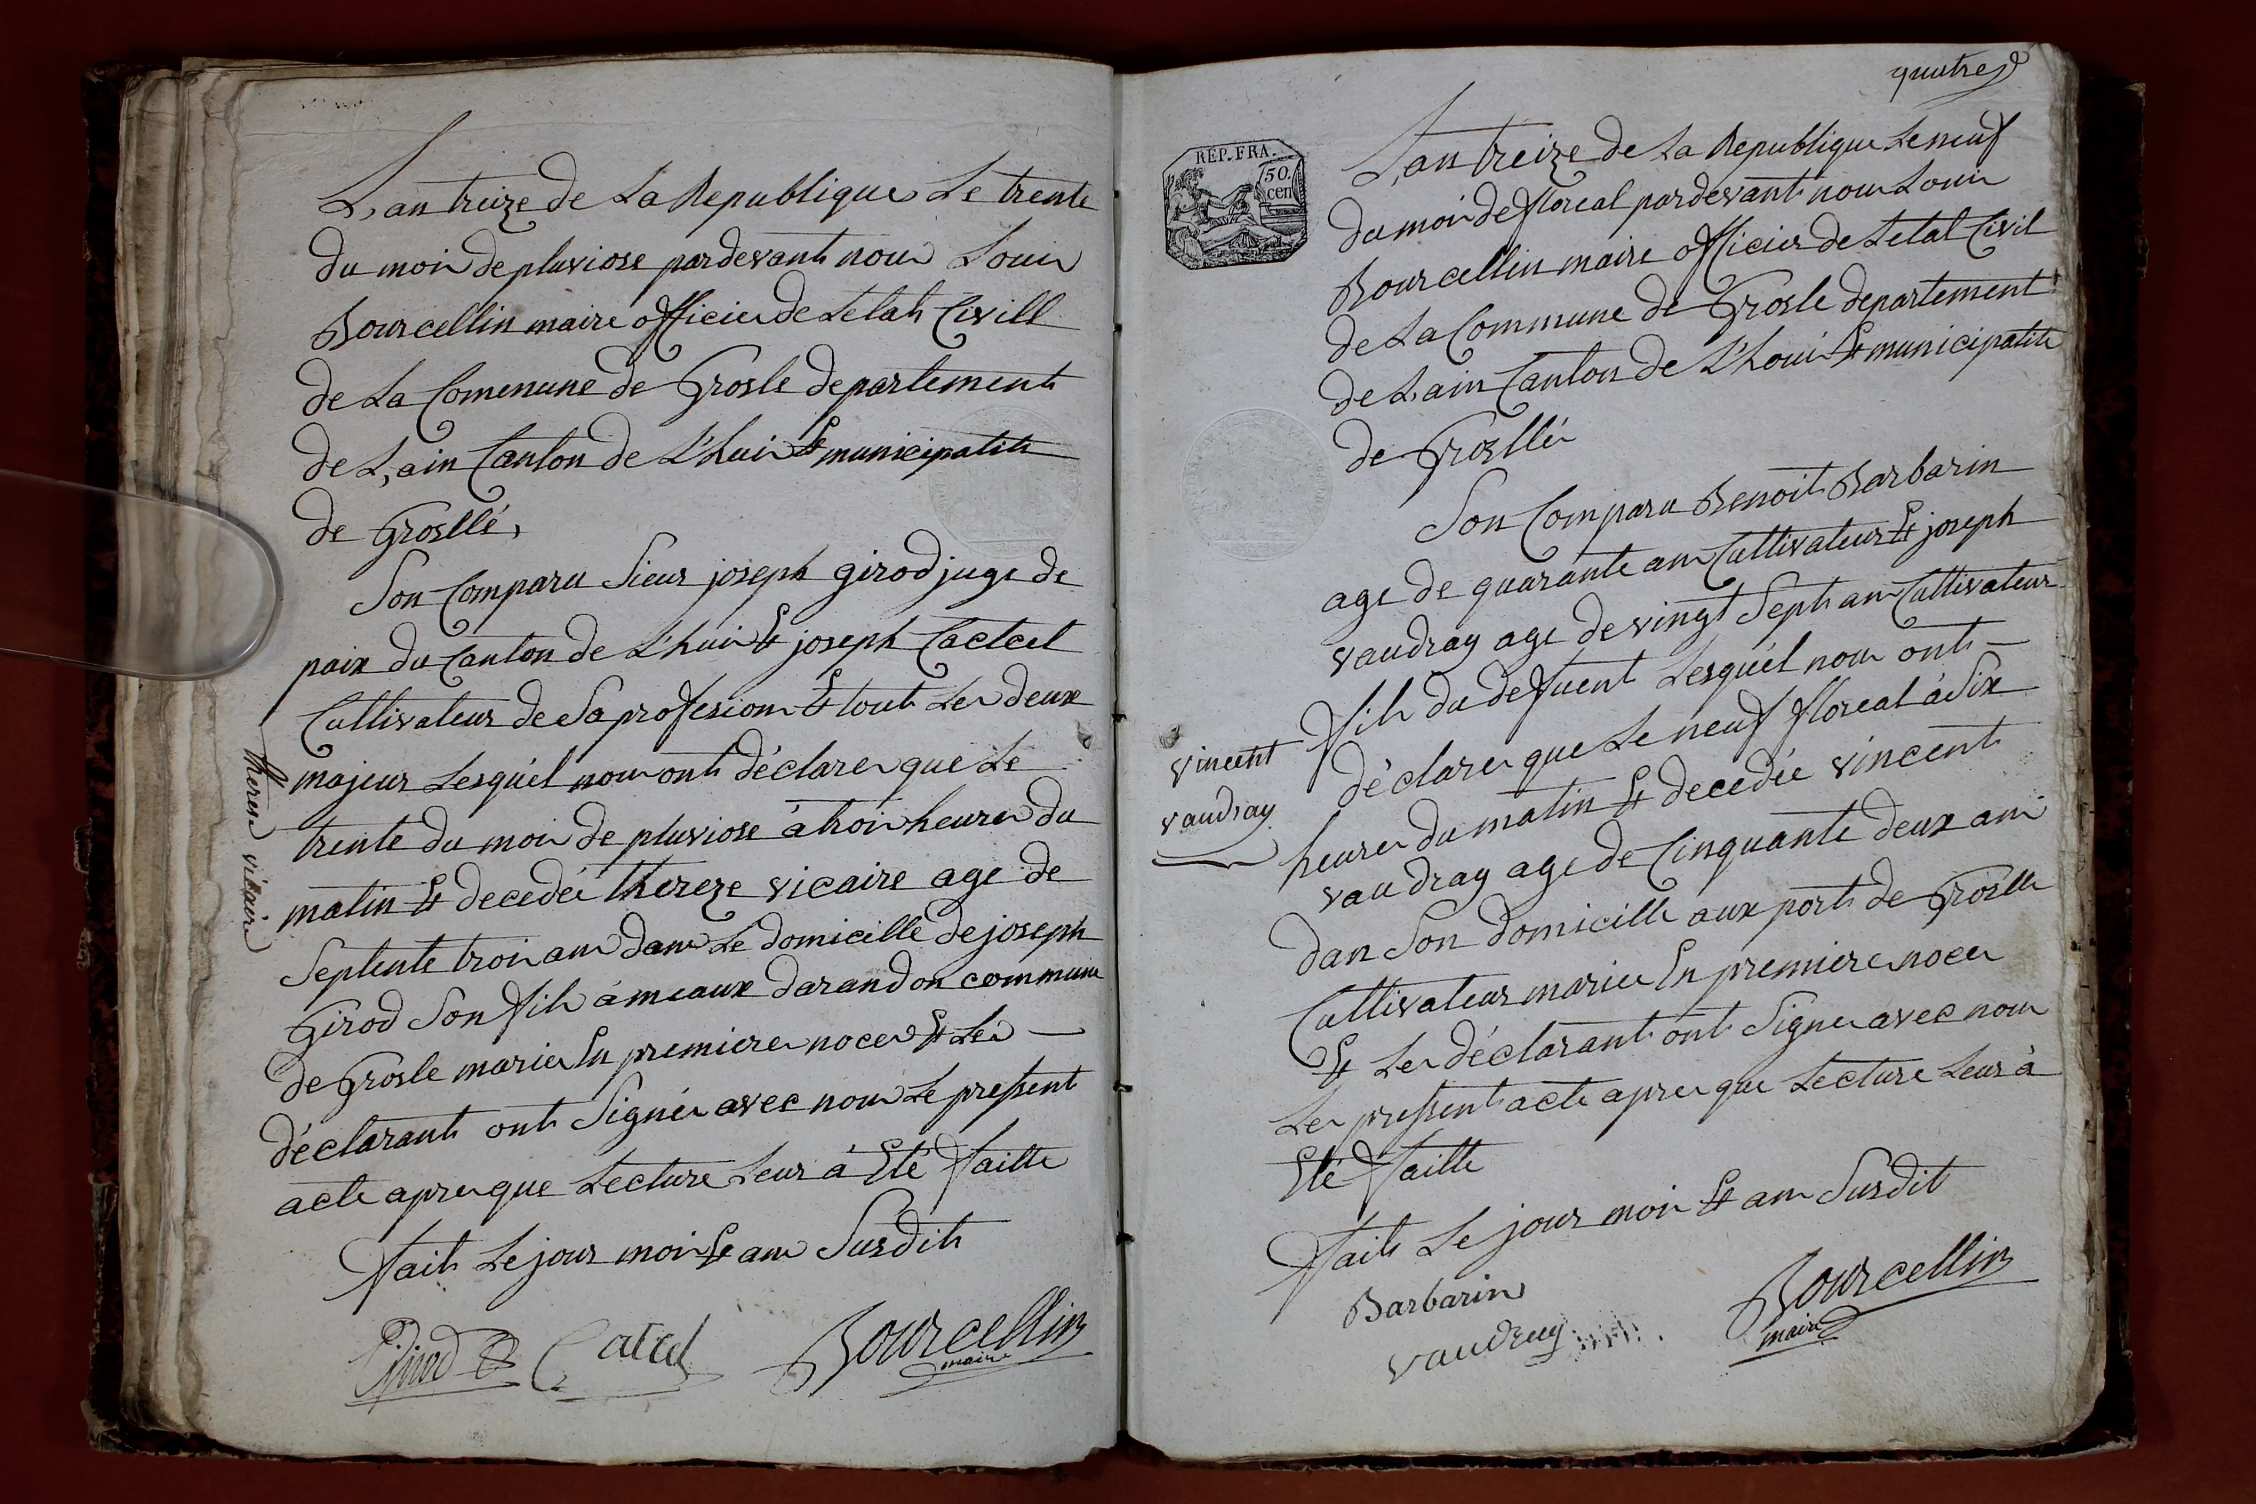 L'an treize de La Republique Le trente
du mois de pluviose pardevant nous Louis
Bourcellin maire officier de Letat Civill
de La Commune de Grosle departement
de L'ain Canton de L'huis Et municipalité
de Grosllé,
Son Comparu Sieur joseph girod juge de
paix du Canton de L'huis Et joseph Cactcel
Cultivateur de Sa profesion Et tout Les deux
majeur Lesquél nous ont déclarer que Le
trente du mois de pluviose à trois heures du
matin Et decedée thereze vicaire age de
Septente trois ans dans Le domicille de joseph
Girod Son fils à meaux darandon commune
de Grosle marier En premiere noces Et Les
déclarant ont Signér avec nous Le present
acte apres que Lecture Leur à Eté faitte
fait Le jour mois Et ans Susdit
therese vicaire
Girod
Catcel
Bourcellin
maire
quatre
REP. FRA.
50.
cen
L'an treize de La Republique Le neuf
du mois de floreal pardevant nous Louis
Bourcellin maire officier de Letat Civil
de La Commune de Grosle departement
de L'ain Canton de L'houis Et municipalite
de Grosllé
Son Comparu Benoit Barbarin
age de quarante ans Cultivateur Et joseph
vaudray age de vingt Sept ans Cultivateur
fils du defuent Lesquél nous ont
déclarer que Le neuf floreal à Six
heures du matin Et decedée vincent
vaudray age de Cinquante deux ans
dans Son domicille aux port de Groslle
Cultivateur marier En premiere noces
Et Les déclarant ont Signer avec nous
Le present acte apres que Lecture Leur à
Eté faitte
fait Le jour mois Et ans Susdit
vincent
vaudray
Barbarin
vaudrey
Bourcellin
maire